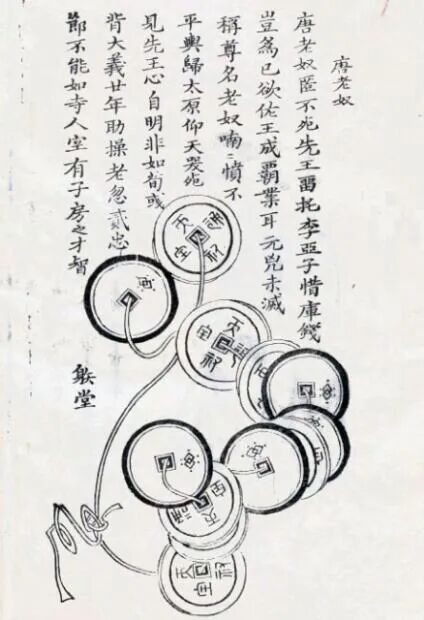 唐老奴
唐老奴匿不死先王畱托李亞子惜庫錢
豈為己欲佐王成覇業耳元兇未滅
稱尊名老奴喃〻憤不
平輿歸太原仰天哭死
見先王心自明非如荀彧
背大義廿年助操老忽貳忠
節不能如寺人室有子房之才智
堂